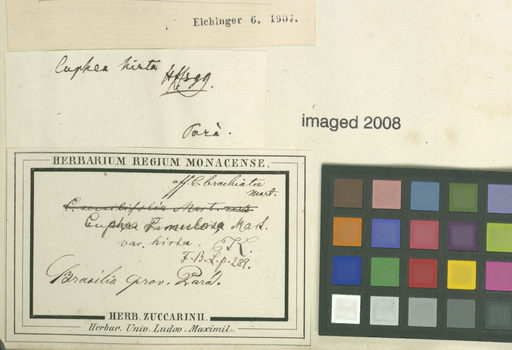 Eichinger 6. 1907.
Cuphea hirta Hffsgg.
Parà.
imaged 2008
HERBARIUM REGIUM MONACENSE.
aff. C. brachiatae
Mart.
Mart. mss
Cuphea ramulosa Mart.
var. hirta. K.
F. B. l. p. 289.
Brasilia prov. Pará.
HERB. ZUCCARINII.
Herbar. Univ. Ludov. Maximil.